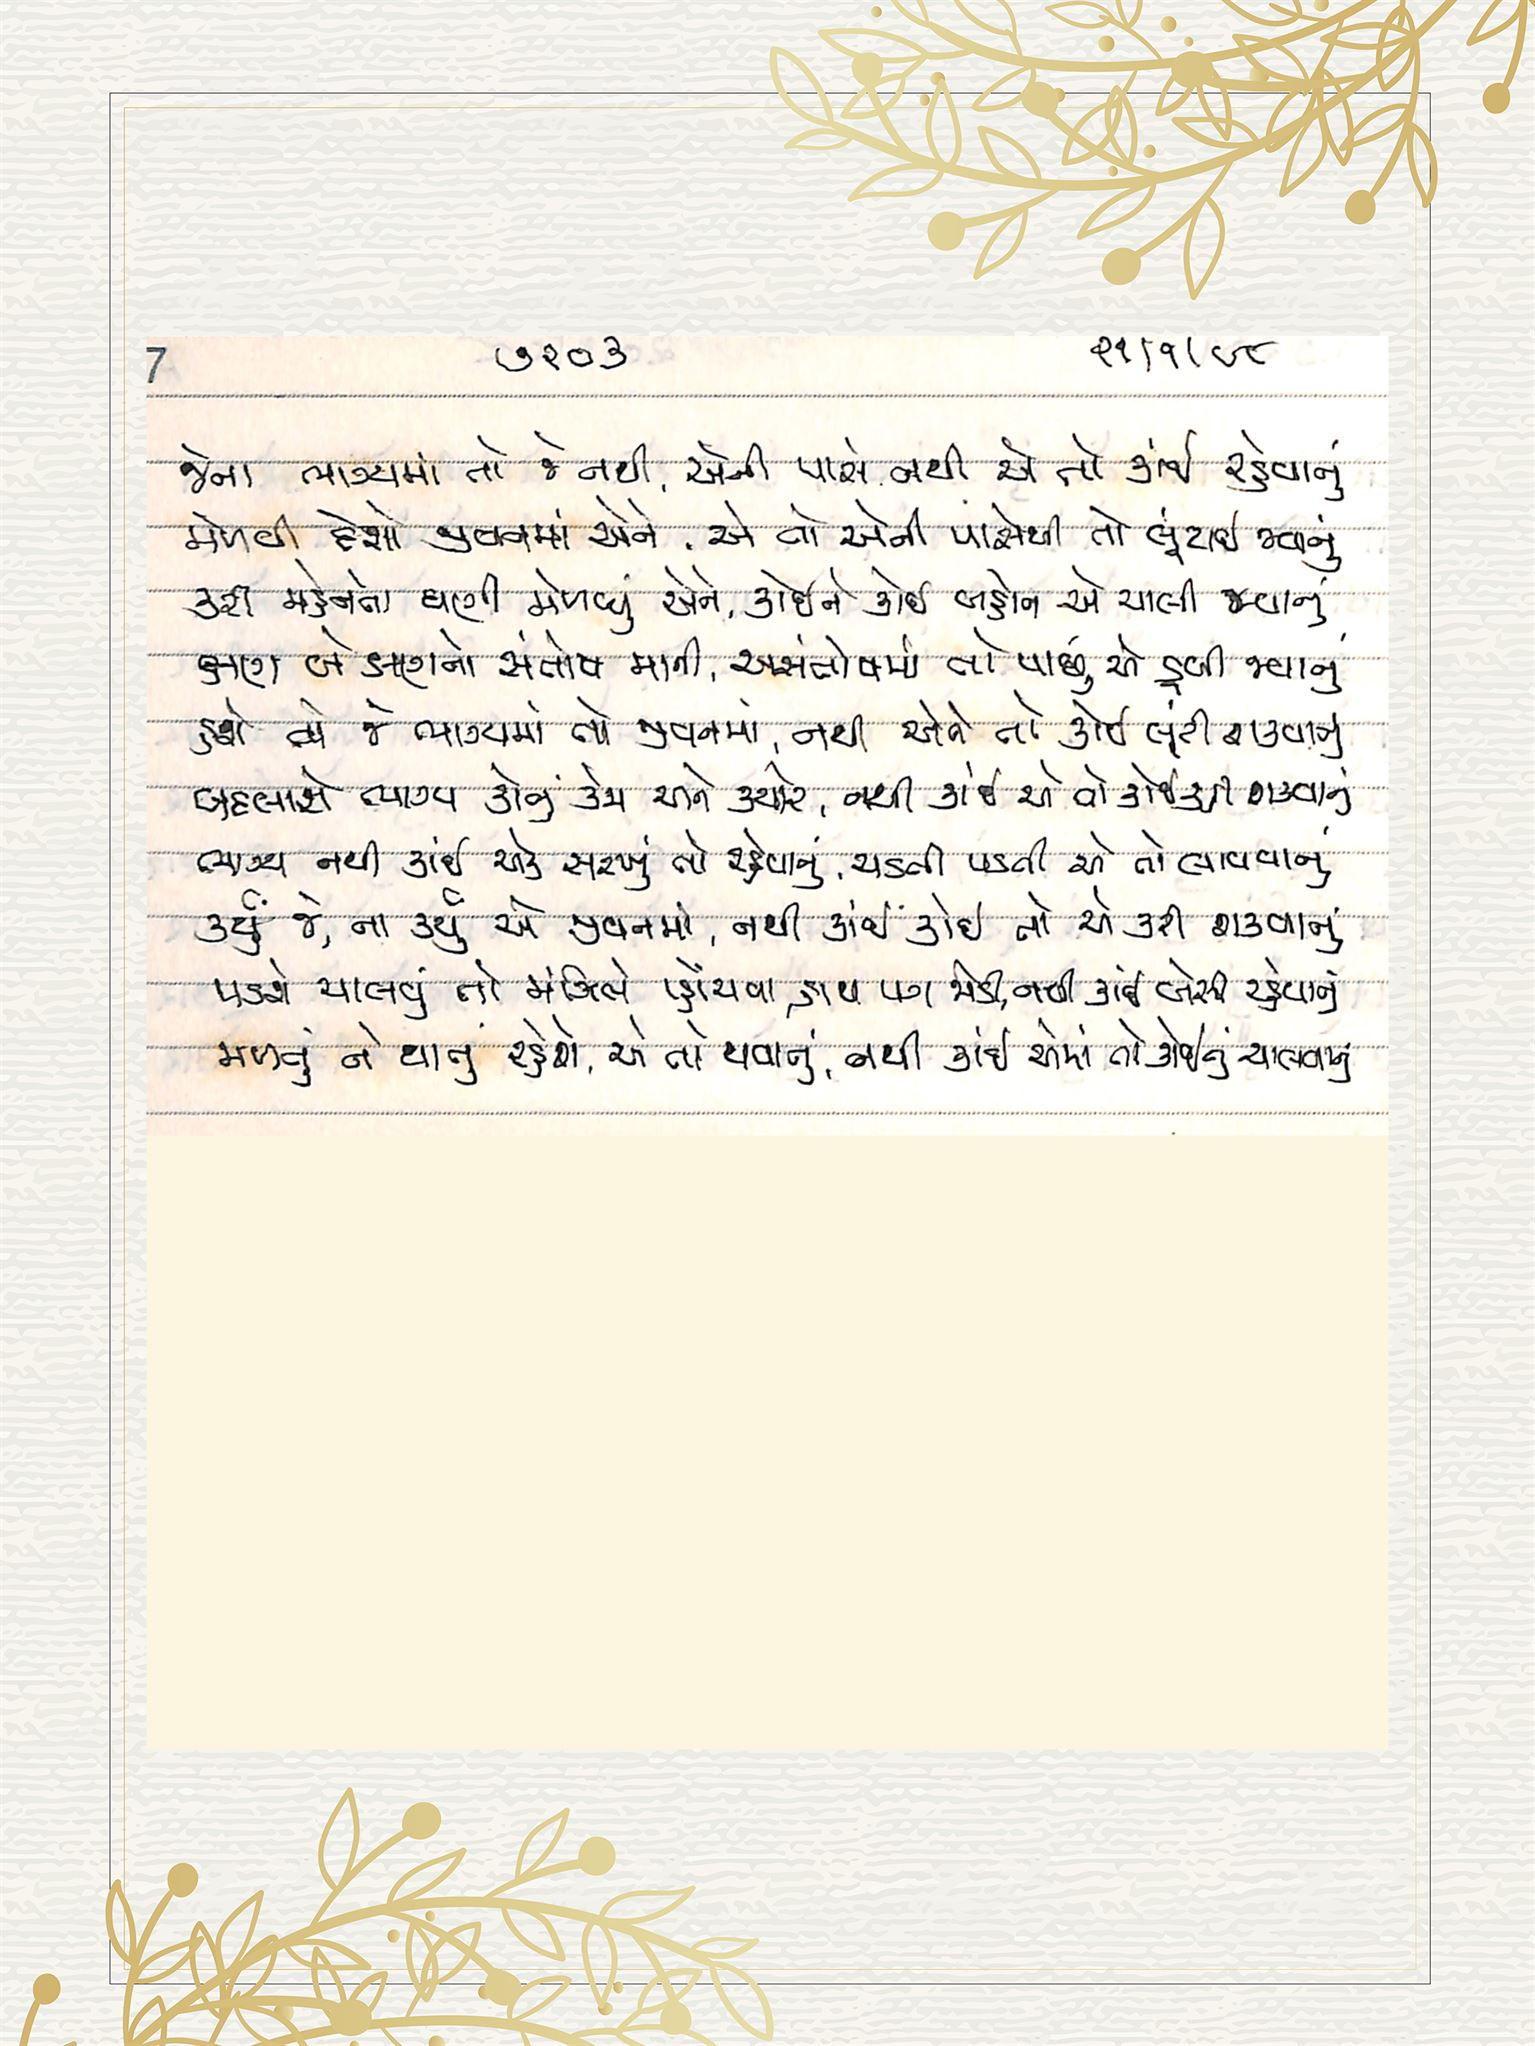 7 ૭૨૦૩ ૨૧/૧/૯૮
જેના ભાગ્યમાં તો જે નથી, એની પાસે નથી એ તો કાંઈ રહેવાનું
મેળવી લેશો જીવનમાં એને, એ તો એની પાસેથી તો લૂંટાઈ જવાનું
કરી મહેનત ઘણી મેળવ્યું એને, કોઈને કોઈ બહાને એ ચાલી જવાનું
ક્ષણ બે ક્ષણનો સંતોષ માની, અસંતોષમાં તો પાછું એ ડૂબી જવાનું
હશે તો જે ભાગ્યમાં તો જીવનમાં, નથી એને તો કોઈ લૂંટી શકવાનું
બદલાશે ભાગ્ય કોનું કેમ અને ક્યારે, નથી કાંઈ એ તો કોઈ કહી શકવાનું
ભાગ્ય નથી કાંઈ એક સરખું તો રહેવાનું, ચડતી પડતી એ તો લાવવાનું
કર્યું જે, ના કર્યું એ જીવનમાં, નથી કાંઈ કોઈ તો એ કરી શકવાનું
પડશે ચાલવું તો મંઝિલે પ્હોંચવા, હાથ પગ જોડી, નથી કાંઈ બેસી રહેવાનું
મળવું ને થાવું હશે, એ તો થવાનું, નથી કાંઈ એમાં તો કોઈનું ચાલવાનું